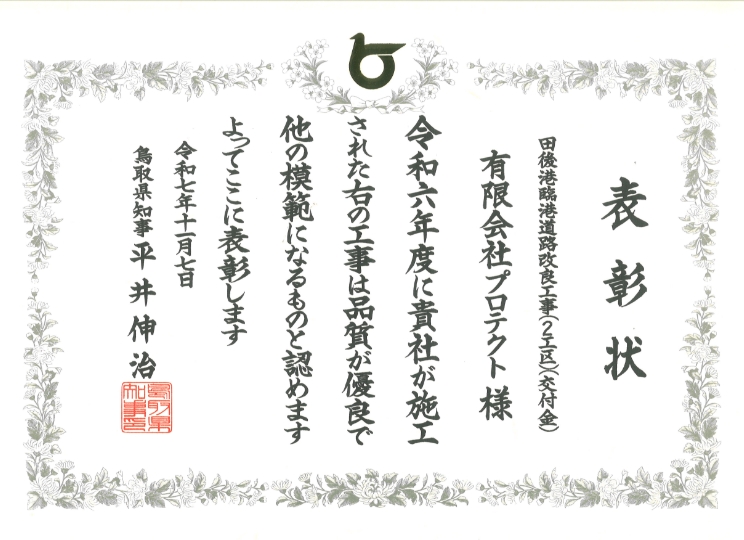 表彰状
田後港臨港道路改良工事(2工区)(交付金)
有限会社プロテクト 様
令和六年度に貴社が施工
された右の工事は品質が優良で
他の模範になるものと認めます
よってここに表彰します
令和七年十一月七日
鳥取県知事 平井伸治
鳥取県知事印